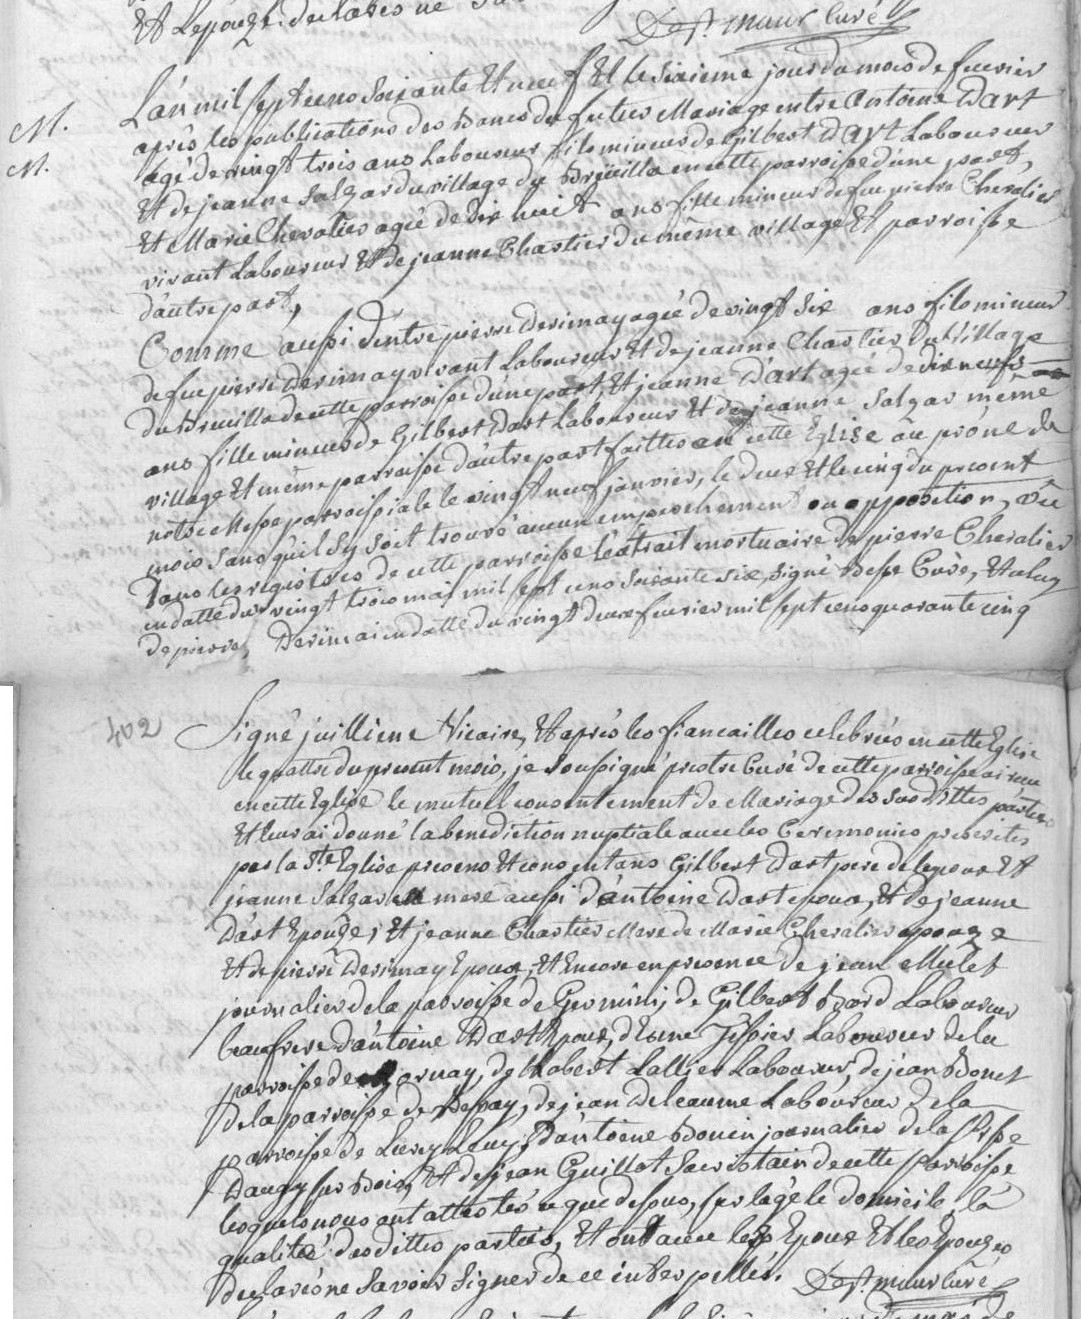 Et Lepouze declarés ne
Dest. maur Curé
M.
M.
L'an mil sept cens soixante et neuf et le sixieme jour du mois de fevrier
après les publications des Bancs de futur Mariage entre Antoine Dart
agé de vingt trois ans Laboureur fils mineur de Gilbert Dart Laboureur
et de jeanne Salzar du village du Brüeilla en cette parroisse d'une part,
Et Marie Chevalier agée de dix neuf ans fille mineur de feu pierre Chevalier
vivant Laboureur et de jeanne Chartier du même village et parroisse
d'autre part,
Comme aussi d'entre pierre Desimay agée de vingt six ans fils mineur
de feu pierre Desimay vivant Laboureur et de jeanne Chartier du village
du Breuilla de cette parroisse d'une part, et jeanne Dart agée de dix neufs
ans fille mineur de Gilbert Dart Laboureur et de jeanne Salzar même
village et même parroisse d'autre part faittes en cette Eglise au prône de
notre Messe parroissiale le vingt neuf janvier, le deux et le cinq du present
mois sans qu'il s'y soit trouvé aucun empechement ou opposition, vu
Dans les registres de cette parroisse l'extrait mortuaire de pierre Chevalier
en datte du vingt trois mai mil sept cens soixante six, signé Curé, et celuy
de pierre Desimai en datte du vingt deux fevrier mil sept cens quarante cinq
402
Signé juilliene Vicaire, Et après les fiancailles celebrées en cette Eglise
le quattre du present mois, je soussigné prêtre Curé de cette parroisse ai recu
en cette Eglise le mutuel consentement de Mariage des susdittes parties
Et leur ai donné la benediction nuptiale avec les Ceremonies prescrites
par la Ste Eglise presens et consentans Gilbert Dart pere de lepoux Et
jeanne Salzar mere aussi d'antoine Dart epoux, et de jeanne
Dart Epouze; Et jeanne Chartier Mere de Marie Chevalier epouze
Et de pierre Desimay Epoux, et Encore en presence de jean Mulet
journalier de la parroisse de Germini, de Gilbert Bard Laboureur
beaufrere d'antoine Dart Epoux, Laboureur de la
parroisse de de Robert Lallier Laboureur, de jean Bonet
de la parroisse de Bessay, de jean Deleaume Laboureur de la
parroisse de Lurcy Levy, D'antoine Bouin journalier de la Psse
Daugy sur Bois, Et de jean Guillot Sacristain de cette parroisse
lesquels nous ont attestés ce que dessus, sur l'age le domicile, la
qualité desdittes parties, Et ont avec les Epoux Et les Epouzes
declarés ne savoir signer de ce interpellés. Dest. maur Curé